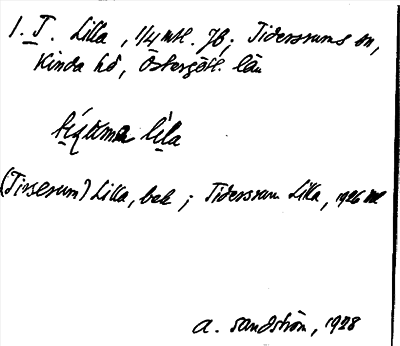 1. T. Lilla, 1/4 mtl. JB; Tidersrums sn,
Kinda hd, Östergötl. län
lila
(Tirserum) Lilla, bek; Tidersrum Lilla, 1926
A. Sandström, 1928